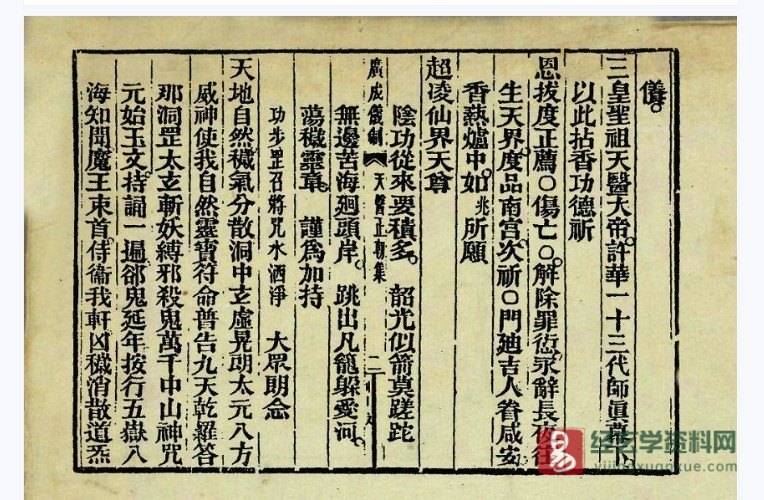 儀。
三皇聖祖天醫大帝。許華一十三代師眞
以此拈香功德祈
恩拔度正薦〇傷亡〇。解除罪愆永辭長夜往
生天界。度品南宫。次祈〇門廸吉人眷咸安
香熱爐中。如兆所願
超凌仙界天尊
陰功從來要積多。韶光似箭莫蹉跎
廣成儀制 天醫正朝集 二
無邊苦海廻頭岸。跳出凡籠躱愛河。
蕩穢靈章。謹爲加持
功步罡召將咒水洒淨 大眾朗念
天地自然穢氣分散洞中玄虛晃朗太元八方
威神使我自然靈寶符命普告九天乾羅答
那洞罡太玄斬妖縛邪殺鬼萬千中山神咒
元始玉文。持誦一遍。郤鬼延年按行五嶽八
海知聞魔王束首。侍衞我軒凶穢消散道炁
易 经玄学资料网
yijingxuanxue.com